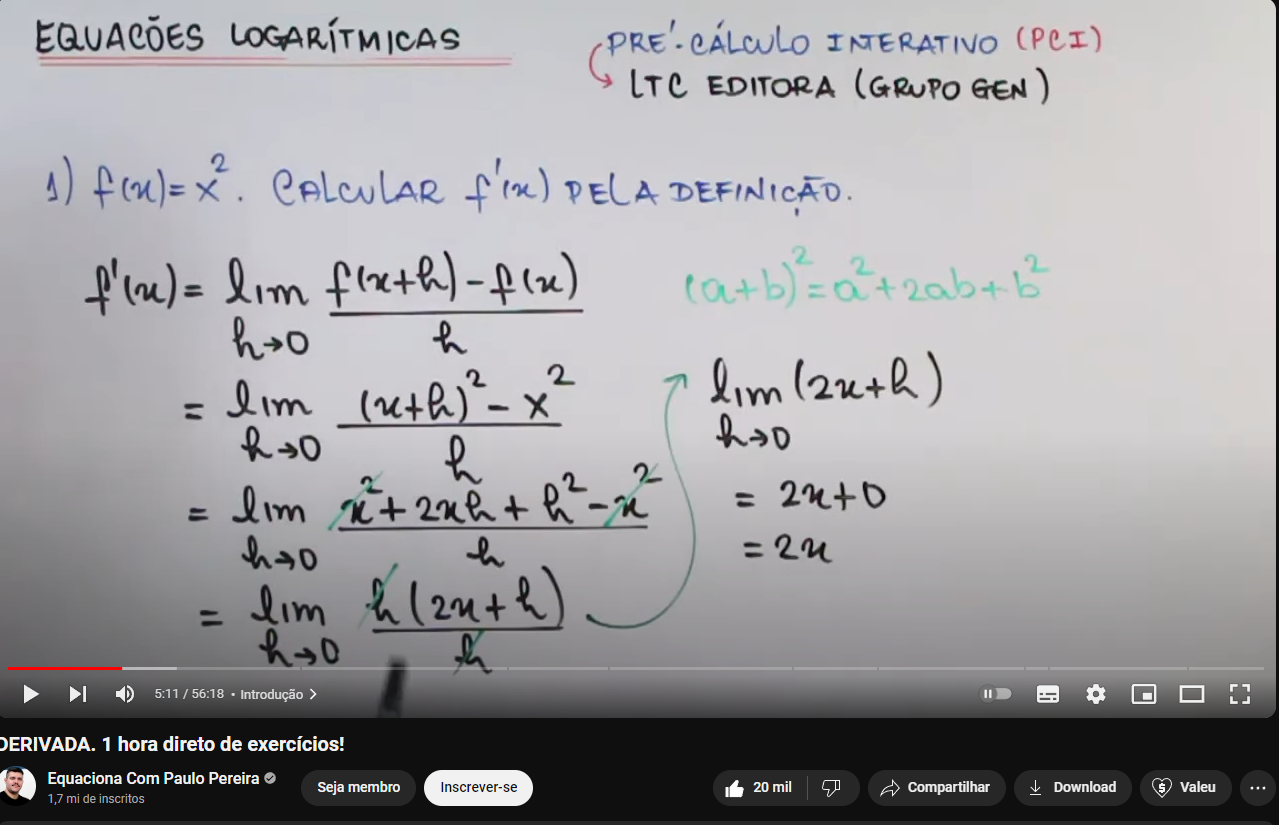 EQUAÇÕES LOGARÍTMICAS
PRÉ-CÁLCULO INTERATIVO (PCI)
LTC EDITORA (GRUPO GEN)
1) f(x)=x². CALCULAR f'(x) PELA DEFINIÇÃO.
f'(x) = lim h→0 f(x+h)-f(x) / h
= lim h→0 (x+h)² - x² / h
= lim h→0 x² + 2xh + h² - x² / h
= lim h→0 h(2x+h) / h
(a+b)² = a² + 2ab + b²
lim h→0 (2x+h)
= 2x+0
= 2x
5:11 / 56:18 • Introdução >
DERIVADA. 1 hora direto de exercícios!
Equaciona Com Paulo Pereira
1,7 mi de inscritos
Seja membro
Inscrever-se
20 mil
Compartilhar
Download
Valeu